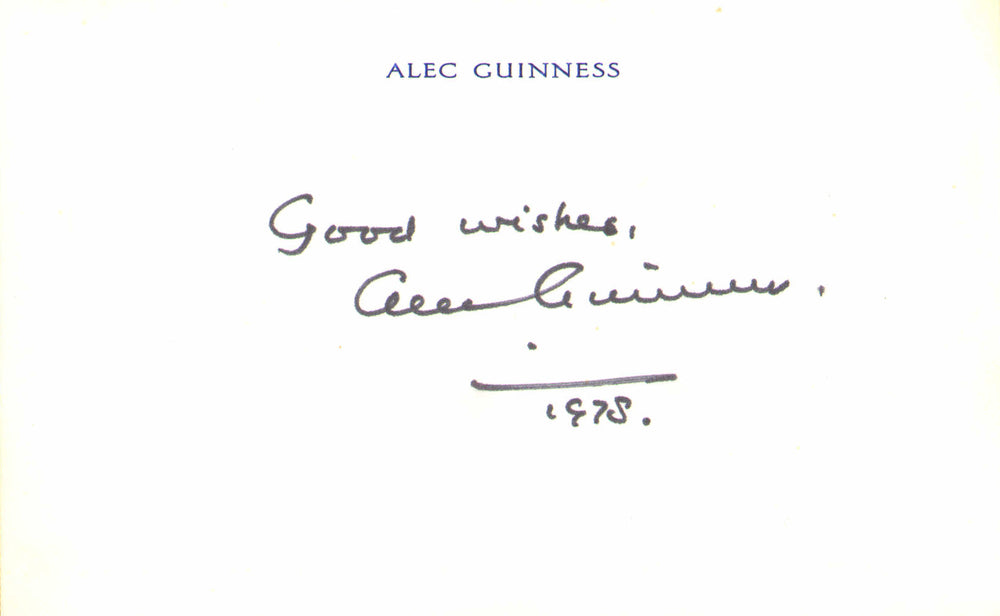 ALEC GUINNESS
Good wishes,
Alec Guinness.
1978.